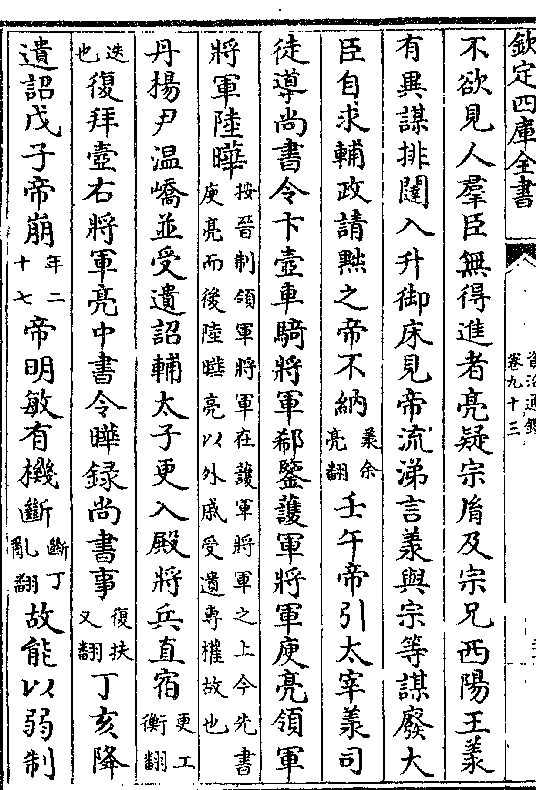 欽定四庫全書
資治通鑑
卷九十三
不欲見人羣臣無得進者亮疑宗胤及宗兄西陽王羕
有異謀排闥入升御床見帝流涕言羕與宗等謀廢大
臣自求輔政請黜之帝不納羕余亮翻壬午帝引太宰羕司
徒導尚書令卞壼車騎將軍郗鑒護軍將軍庾亮領軍
將軍陸曄按晉制領軍將軍在護軍將軍之上今先書庾亮而後陸曄亮以外戚受遺專權故也
丹揚尹温嶠並受遺詔輔太子更入殿將兵直宿更工衡翻
迭也復拜壼右將軍亮中書令曄録尚書事復扶又翻丁亥降
遺詔戊子帝崩年二十七帝明敏有機斷斷丁亂翻故能以弱制